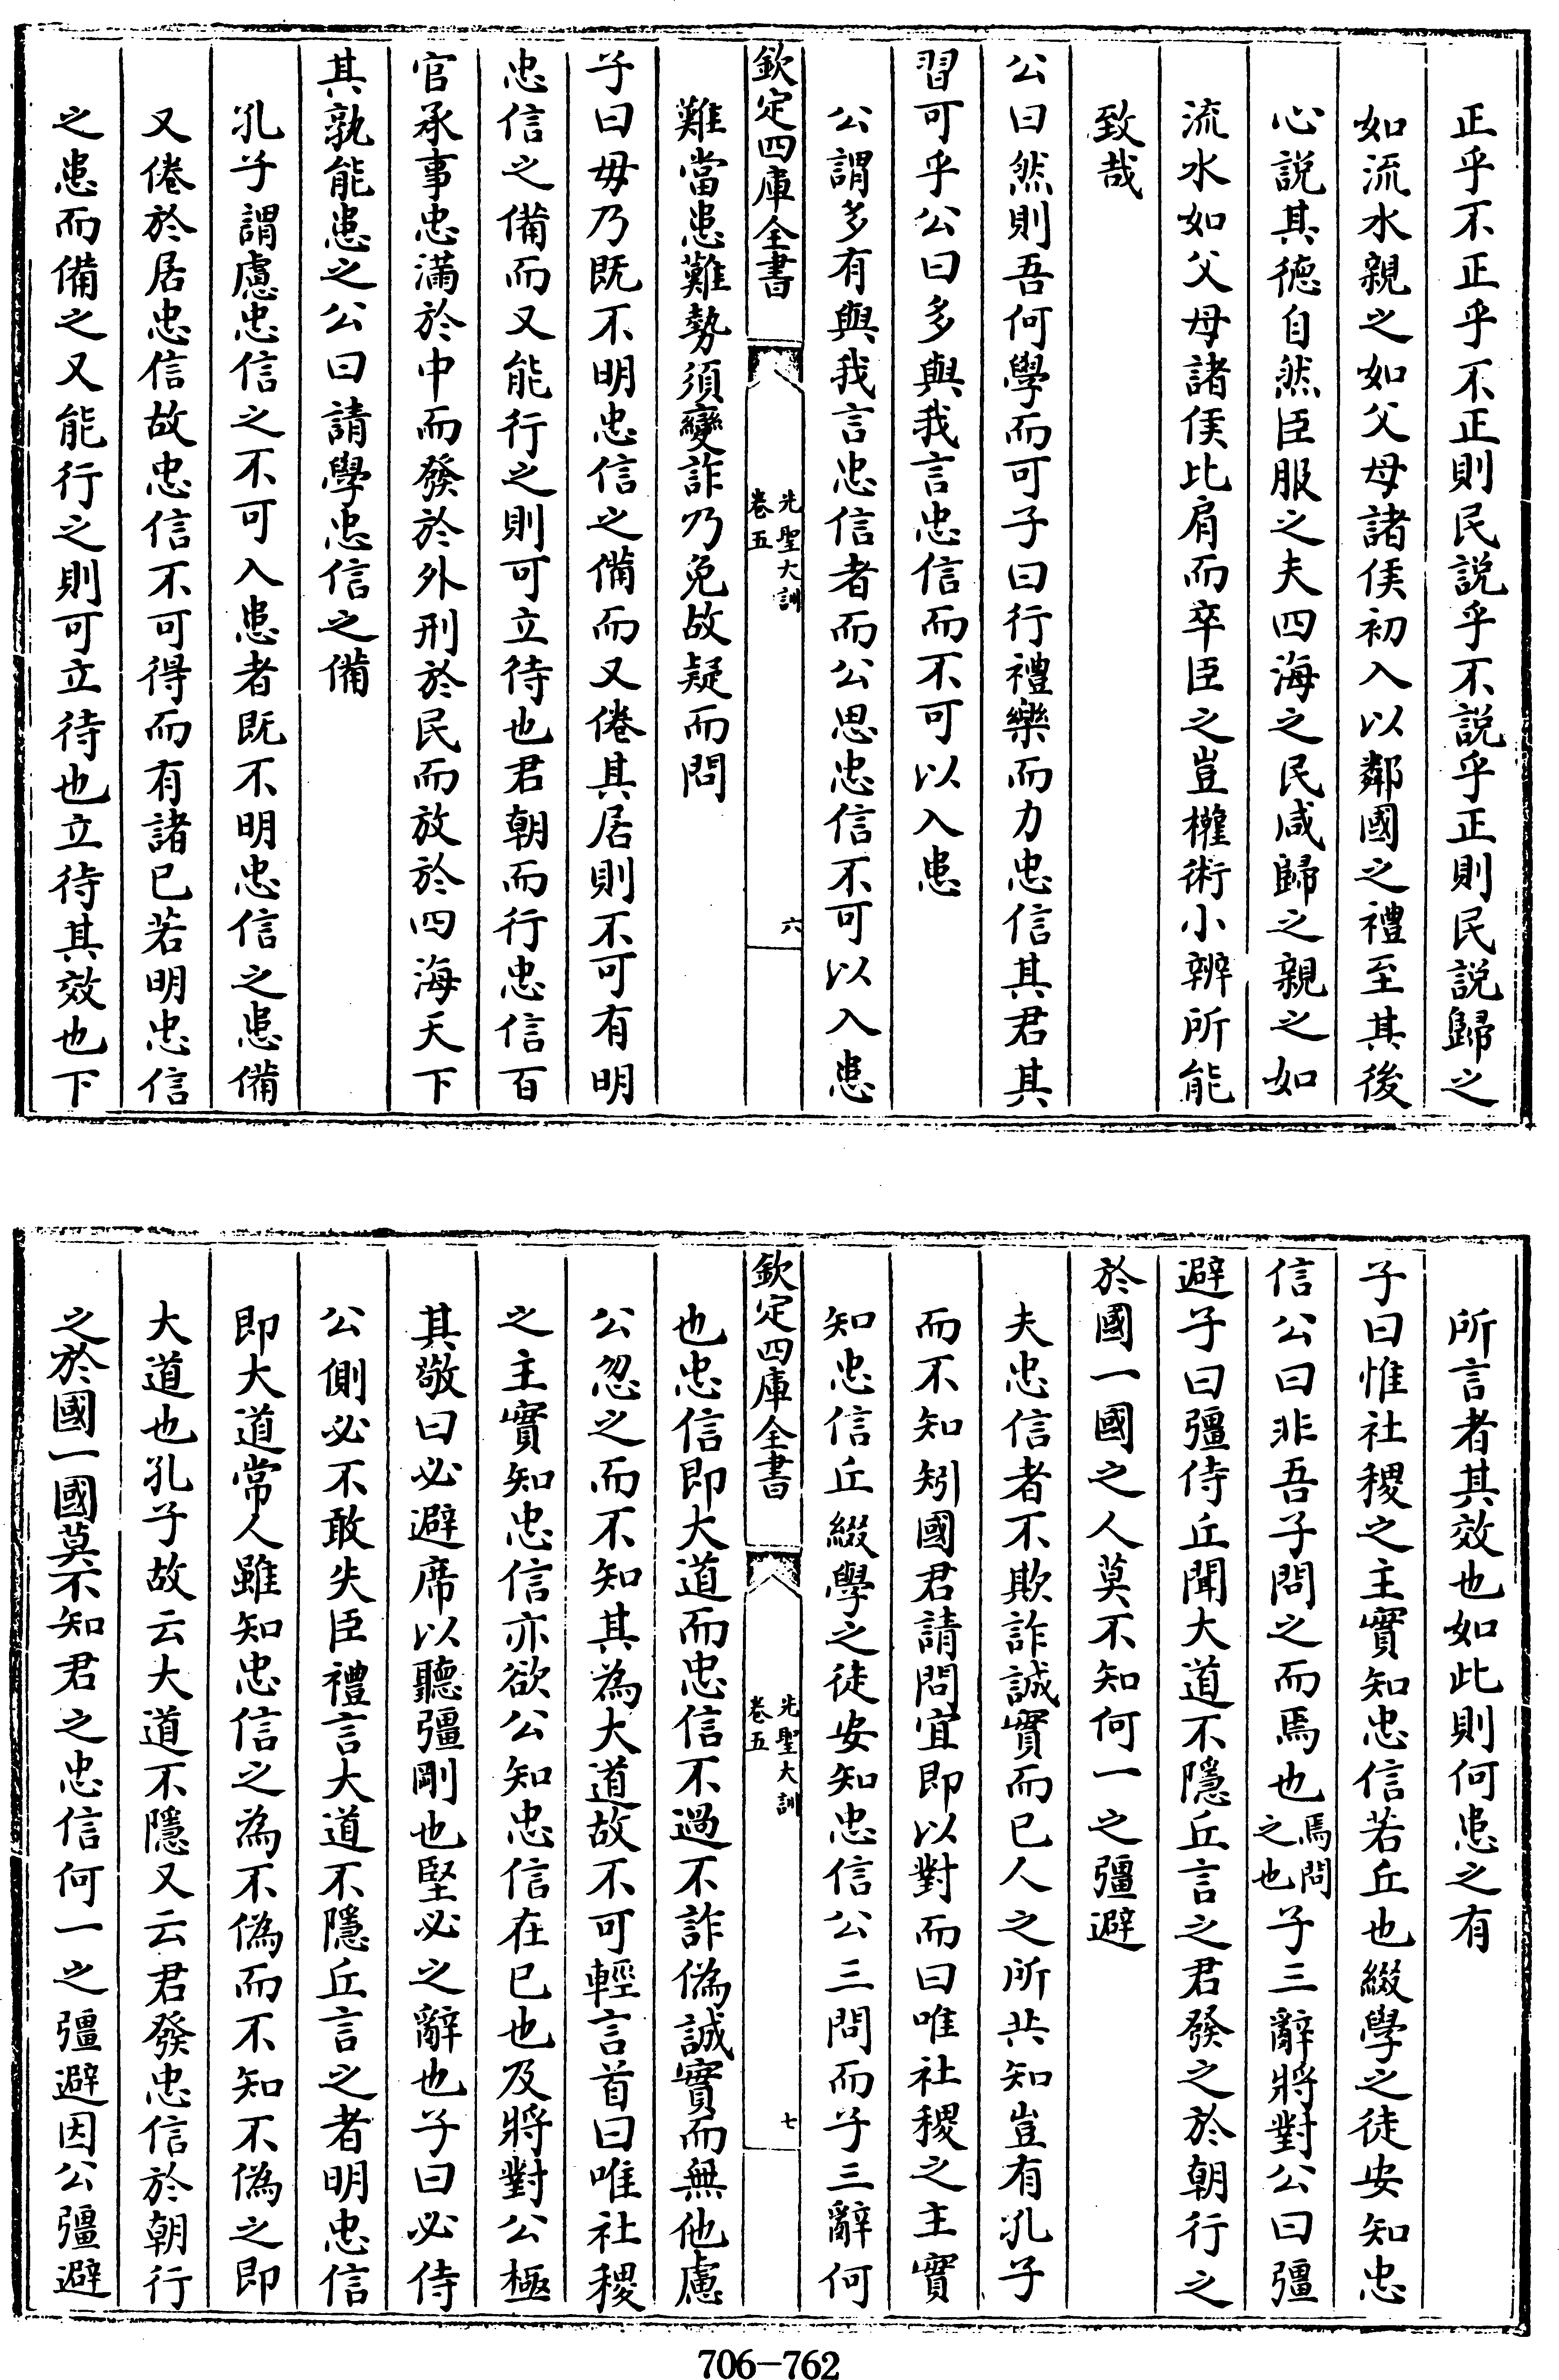 正乎不正乎不正則民説乎不説乎正則民説歸之
如流水親之如父母諸侯初入以鄰國之禮至其後
心説其徳自然臣服之夫四海之民咸歸之親之如
流水如父母諸侯比肩而卒臣之豈權術小辨所能
致哉
公曰然則吾何學而可子曰行禮樂而力忠信其君其
習可乎公曰多與我言忠信而不可以入患
公謂多有與我言忠信者而公思忠信不可以入患
欽定四庫全書
先聖大訓
卷五
六
難當患難勢須變詐乃免故疑而問
子曰毋乃既不明忠信之備而又倦其居則不可有明
忠信之備而又能行之則可立待也君朝而行忠信百
官承事忠滿於中而發於外刑於民而放於四海天下
其孰能患之公曰請學忠信之備
孔子謂慮忠信之不可入患者既不明忠信之患備
又倦於居忠信故忠信不可得而有諸已若明忠信
之患而備之又能行之則可立待也立待其效也下
所言者其效也如此則何患之有
子曰惟社稷之主實知忠信若丘也綴學之徒安知忠
信公曰非吾子問之而焉也焉問之也子三辭將對公曰彊
避子曰彊侍丘聞大道不隱丘言之君發之於朝行之
於國一國之人莫不知何一之彊避
夫忠信者不欺詐誠實而已人之所共知豈有孔子
而不知矧國君請問宜即以對而曰唯社稷之主實
知忠信丘綴學之徒安知忠信公三問而子三辭何
欽定四庫全書
先聖大訓
卷五
七
也忠信即大道而忠信不過不詐偽誠實而無他慮
公忽之而不知其為大道故不可輕言首曰唯社稷
之主實知忠信亦欲公知忠信在已也及將對公極
其敬曰必避席以聽彊剛也堅必之辭也子曰必侍
公側必不敢失臣禮言大道不隱丘言之者明忠信
即大道常人雖知忠信之為不偽而不知不偽之即
大道也孔子故云大道不隱又云君發忠信於朝行
之於國一國莫不知君之忠信何一之彊避因公彊避
706-762